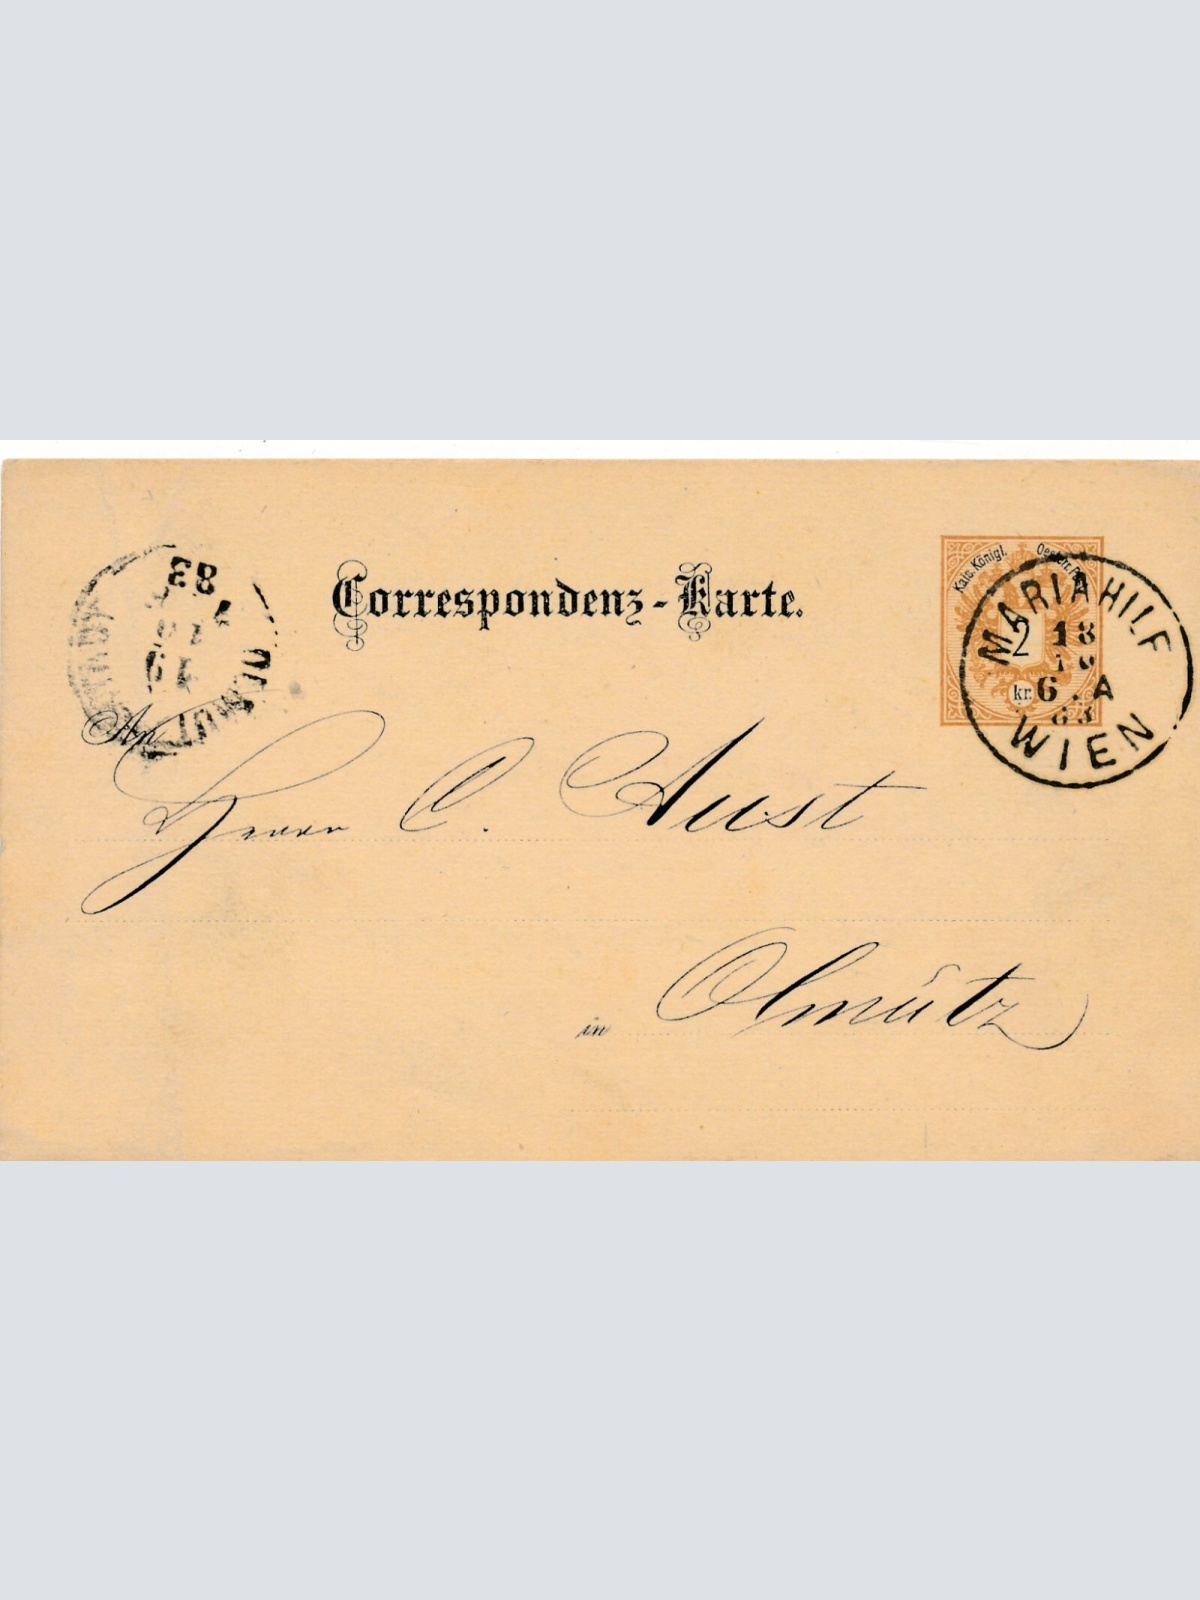 Correspondenz-Karte.
Kais. Königl.
2
kr.
MARIAHILF
18
10
6. A
83
WIEN
83
19
OLMÜTZ
STADT
An
Herrn C. Aust
in Olmütz